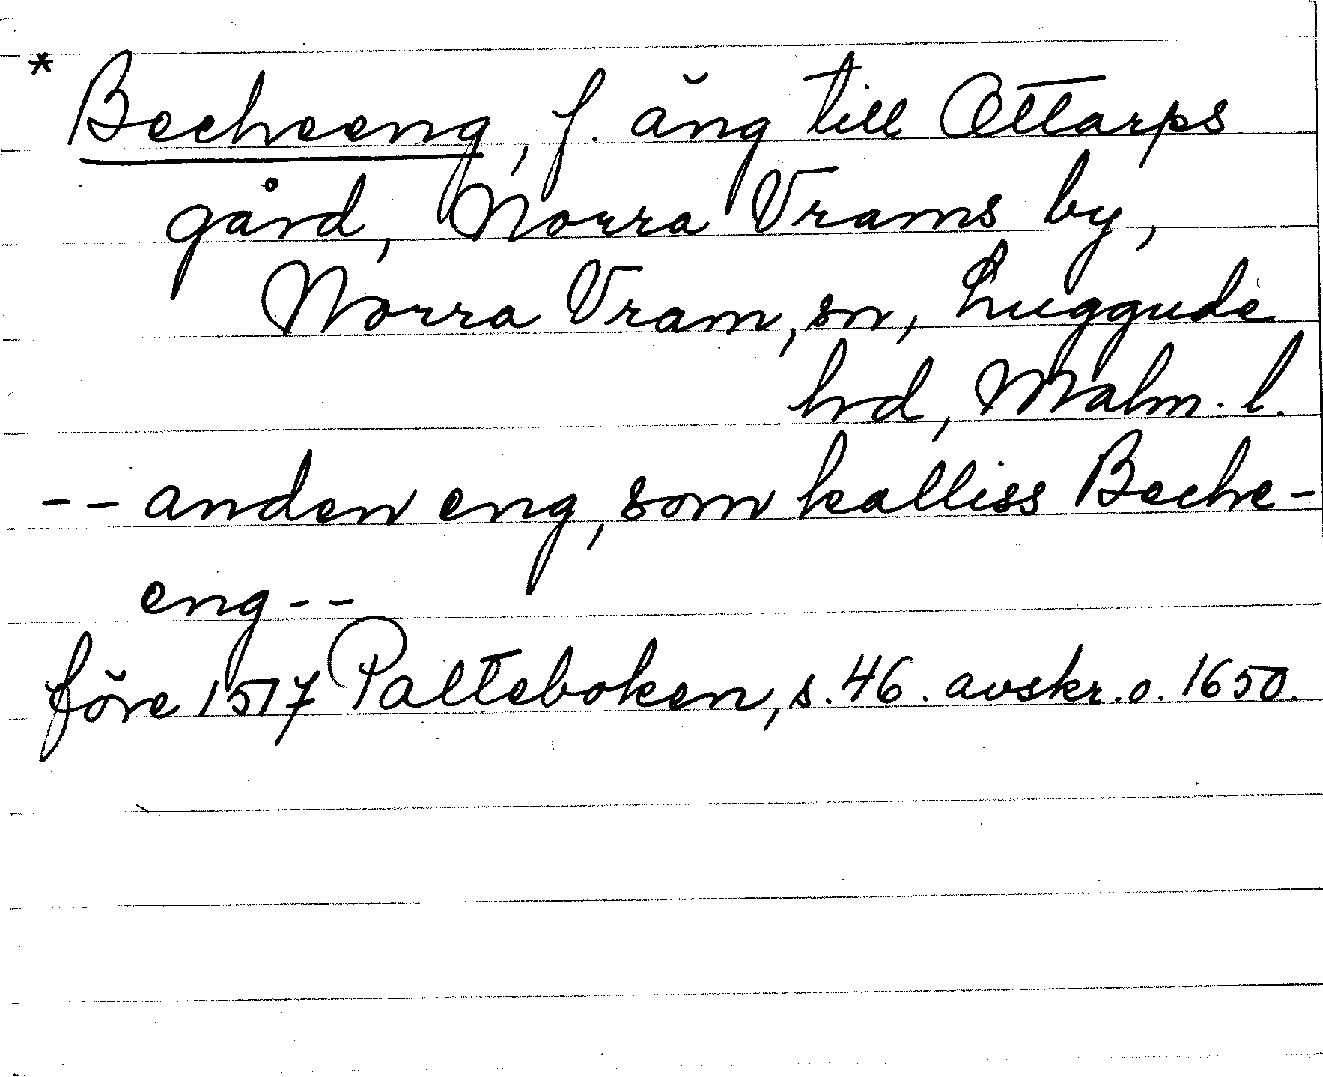 * Becheeng, f. äng till Ottarps
gård, Norra Vrams by,
Norra Vram, sn, Luggude
hd, Malm. l.
-- anden eng, som kalliss Beche-
eng --
före 1517 Palteboken, s. 46. avskr. o. 1650.